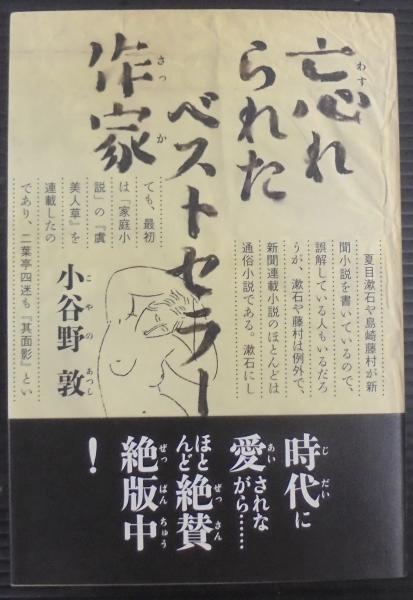 忘れ
られた
ベストセラー
作家
わす
さっ
か
夏目漱石や島崎藤村が新
聞小説を書いているので、
誤解している人もいるだろ
うが、漱石や藤村は例外で、
新聞連載小説のほとんどは
通俗小説である。漱石にし
ても、最初
は「家庭小
説」の『虞
美人草』を
連載したの
であり、二葉亭四迷も『其面影』とい
小谷野 敦
こやの
あつし
時代に
じだい
愛されな
あい
がら……
ほと
んど
絶賛
ぜっさん
絶版中
ぜっぱんちゅう
！